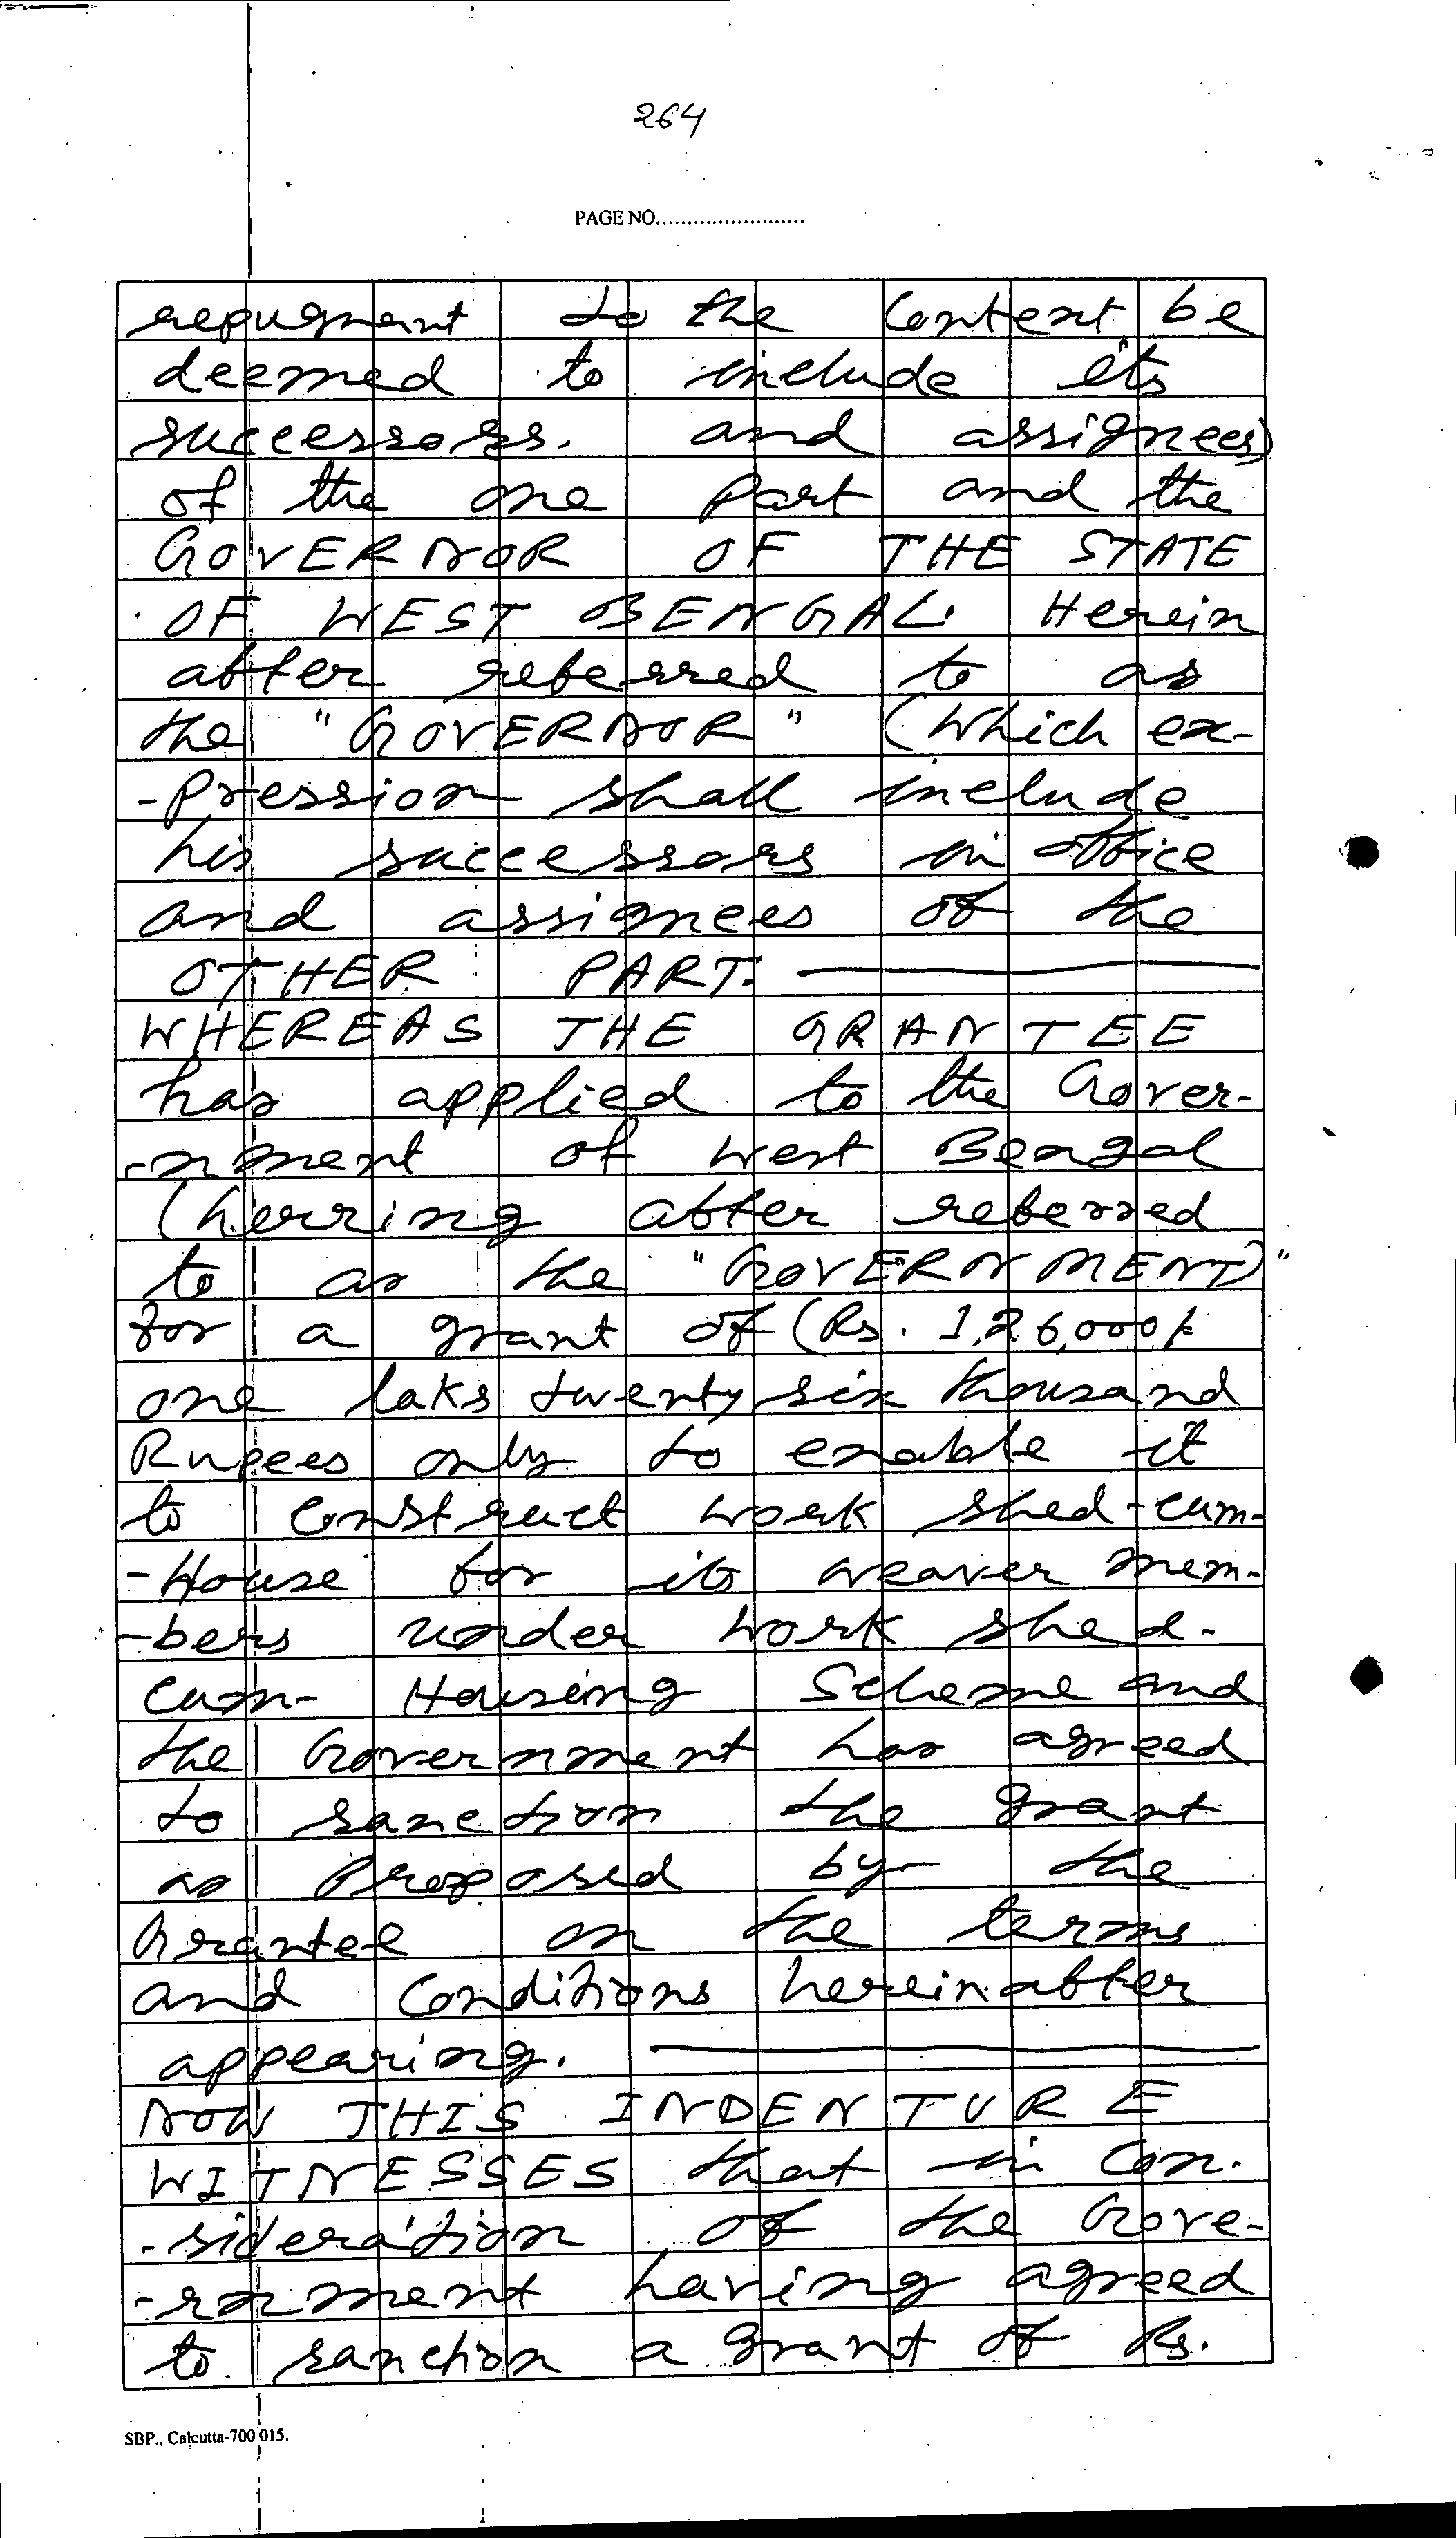 264
PAGE NO........................
repugnant to the Content be
deemed to include its
successors. and assignees)
of the one Part and the
GOVERNOR OF THE STATE
OF WEST BENGAL. Herein
after referred to as
the "GOVERNOR" (Which ex-
-Pression shall include
his successors in office
and assignees of the
OTHER PART.
WHEREAS THE GRANTEE
has applied to the Gover-
-nment of West Bengal
(herring after referred
to as the "GOVERNMENT)"
for a grant of (Rs. 1,26,000/-
one laks twenty six thousand
Rupees only to enable it
to Construct work shed-cum-
-House for its weaver mem-
-bers under work shed-
cum- Housing Scheme and
the Government has agreed
to sanction the grant
as Proposed by the
Grantee on the terms
and Conditions hereinafter
appearing.
NOW THIS INDENTURE
WITNESSES that in Con.
-sideration of the Gove-
-rnment having agreed
to sanction a grant of Rs.
SBP., Calcutta-700 015.